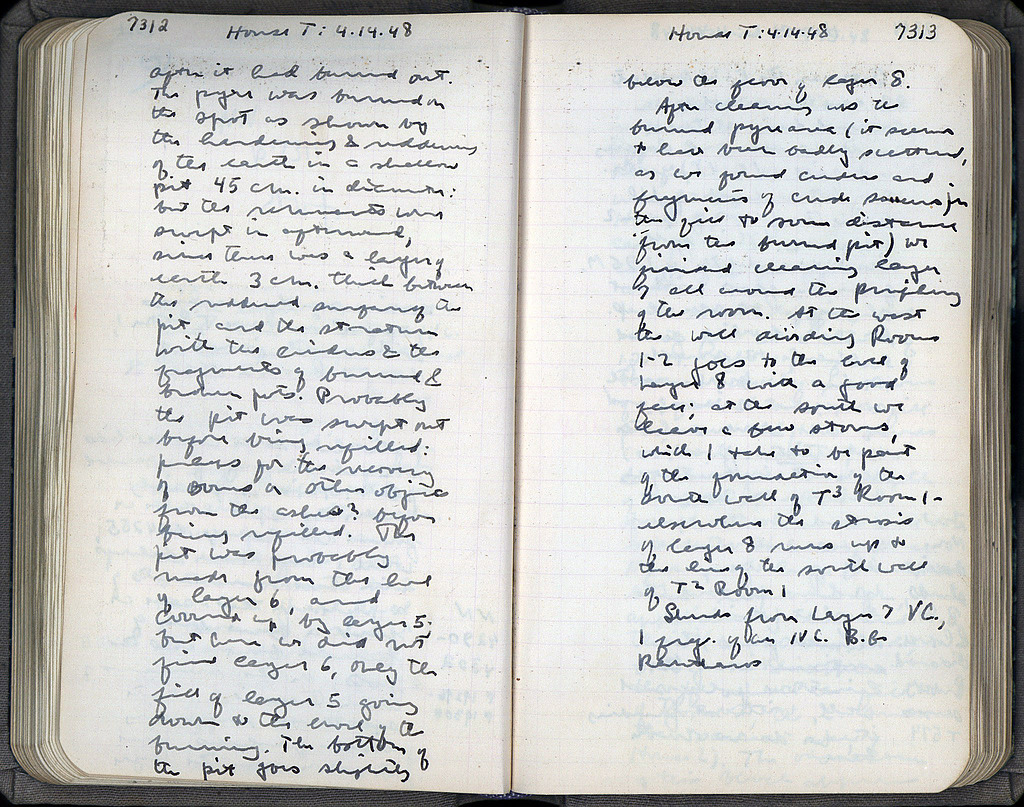 7312
House T: 4.14.48
after it had burned out.
The pyre was burned on
the spot as shown by
the hardening & reddening
of the earth in a shallow
pit 45 cm. in diameter:
but the remnants were
swept in afterward,
since there was a layer of
earth 3 cm. thick between
the reddened surface of the
pit, and the stratum
with the cinders & the
fragments of burned &
broken pots. Probably
the pit was swept out
before being refilled:
perhaps for the recovery
of bones or other objects
from the ashes? before
being refilled. The
pit was probably
made from the level
of layer 6, and
covered up by layer 5.
but here we did not
find layer 6, only the
fill of layer 5 going
down to the level of the
burning. The bottom of
the pit goes slightly
House T: 4.14.48
7313
below the floor of layer 8.
After cleaning up the
burned pyre area (it seems
to have been badly scattered,
as we found cinders and
fragments of in
the fill to some distance
from the burned pit) we
finished cleaning layer
7 all around the periphery
of the room. At the west
the wall dividing Rooms
1-2 goes to the level of
layer 8 with a good
face; at the south we
leave a few stones,
which I take to be part
of the foundation of the
south wall of T³ Room 1-
elsewhere the strosis
of layer 8 runs up to
the line of the south wall
of T² Room 1
Sherds from Layer 7 VC.,
1 frg. of an IVC. B.G.
Kantharos